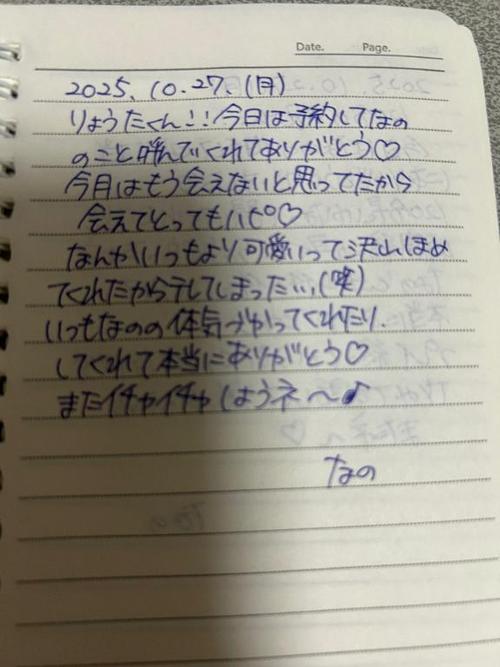 Date. Page.
2025. 10.27. (月)
りょうたくん!! 今日は予約してなの
のこと呼んでくれてありがとう♡
今月はもう会えないと思ってたから
会えてとってもハピ♡
なんかいつもより可愛いって沢山ほめ
てくれたからテレてしまった...(笑)
いつもなのの体気づかってくれたり、
してくれて本当にありがとう♡
またイチャイチャしようネ〜♪
なの